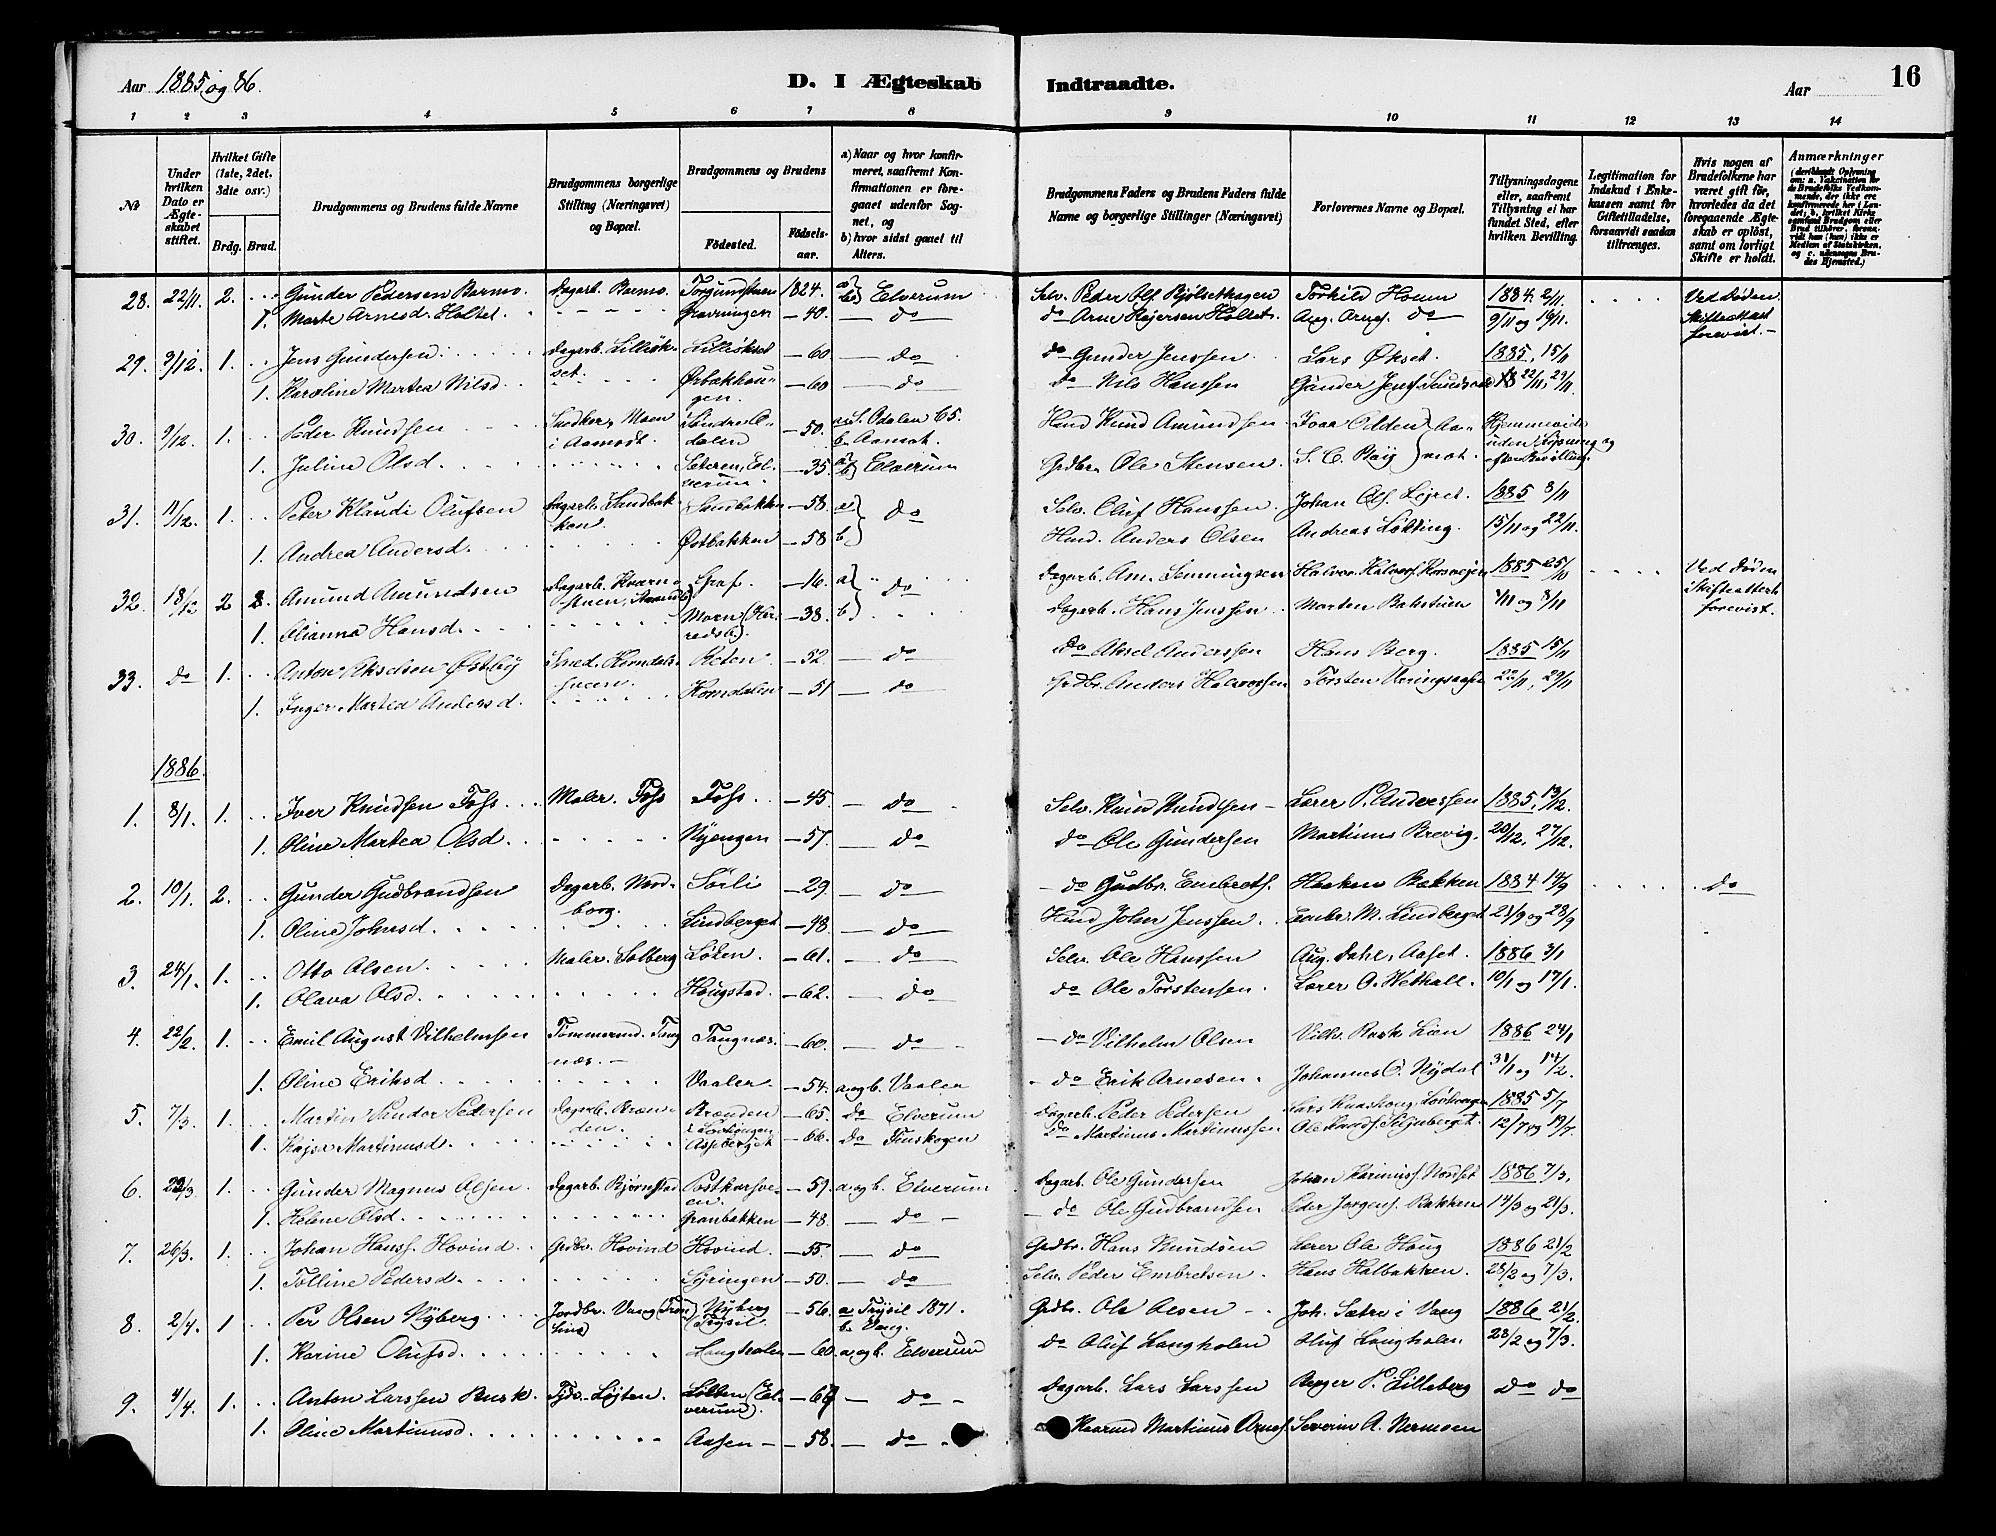 Aar 1885 og 86.
D. I Ægteskab Indtraadte.
Aar
16
1 2 3 4 5 6 7 8 9 10 11 12 13 14
No
Under hvilken Dato er Ægteskabet stiftet.
Hvilket Gifte (1ste, 2det, 3die osv.)
Brdg. Brud.
Brudgommens og Brudens fulde Navne
Brudgommens borgerlige Stilling (Næringsvei) og Bopæl.
Brudgommens og Brudens
Födested. Födselsaar.
a) Naar og hvor konfirmeret, saafremt Konfirmationen er foregaaet udenfor Sognet, og
b) hvor sidst gaaet til Alters.
Brudgommens Faders og Brudens Faders fulde Navne og borgerlige Stillinger (Næringsvei)
Forlovernes Navne og Bopæl.
Tillysningsdagene eller, saafremt Tillysning ei har fundet Sted, efter hvilken Bevilling.
Legitimation for Indskud i Enkekassen samt for Giftetilladelse, forsaavidt saadan tiltrænges.
Hvis nogen af Brudefolkene har været gift för, hvorledes da det foregaaende Ægteskab er oplöst, samt om lovligt Skifte er holdt.
Anmærkninger
28. 22/11. 2. Gunder Pedersen Barmo. Dagarb. Barmo. 1824. a) b) Elverum Selv. Peder Olf. Torkild Houm 1884 2/11. Ved Døden
1. Marte Arnesd. Holtet. Gravningen — 40. — do do Arne Rejersen Holtet. Aug. Arnes. do 9/11 og 16/11. Skifteattest forevist. —
29. 3/12. 1. Jens Gundersen. Dagarb. Lilløkset. Lilløkset — 60 — do do Gunder Jenssen Lars Økset. 1885. 15/11
1. Karoline Martea Nilsd. Ørbækhaugen. — 60 — do do Nils Hanssen Gunder Jens. 22/11, 29/11
30. 9/12. 1. Peder Knudsen Moen i Aamodt. Søndre Odalen — 50. a. S. Odalen 65. b. Aamot. Hmd Knud Amundsen Ivar Odden Aamot. Hjemmevidt uden Lysning og
1. Juline Olsd. Sæteren, Elverum. — 35. a) b) Elverum Grdbr. Ole Stensen. efter Bevilling.
31. 11/12. 1. Peter Klaudi Olufsen Dagarb. Sandbakken. Sandbakken — 58. a) b) do Selv. Oluf Hanssen. Johan Ols. Lejret. 1885 8/11
1. Andrea Andersd. Østbakken — 58 Hmd. Anders Olsen Andreas Løkting. 15/11 og 22/11.
32. 18/12 2 Amund Amundsen Dagarb. Graf. — 16. a) b) do Dagarb. Am. Semmingsen Halvor Halvors. 1885 25/10 Ved Døden
1. Alianna Hansd. — 38. Dagarb. Hans Jenssen Morten Bakstuen 1/11 og 8/11 Skifteattest forevist.
33. do 1. Anton Akselsen Østby Smed. Horndalssveen. Reten — 52. — do do Aksel Anderssen Hans Berg. 1885 15/11
1. Inger Martea Andersd. Horndalen — 51 — do Grdbr. Anders Halvorssen Torsten Væringsaasen 22/11, 29/11
1886.
1. 8/1. 1. Iver Knudsen Foss. Maler. Foss Foss. — 45. — do Selv. Knud Knudsen — Lærer P. Anderssen 1885. 13/12.
1. Oline Martea Olsd Nyengen — 57. do do Ole Gundersen Martinus Brevig. 20/12. 27/12.
2. 10/1. 2. Gunder Gudbrandsen Dagarb. Nordborg. Sørli — 29. — do — do Gudbr. Embrets. Haaken Bækken 1884 14/9 do
1. Oline Johnsd. Lindberget — 48. — do Hmd John Jenssen. Embr. M. Lindberget 21/9 og 28/9
3. 24/1. 1. Otto Olsen. Maler. Solberg Løken. — 61. — do Selv. Ole Hanssen Aug. Dahl, Aaset. 1886 3/1
1. Olava Olsd. Haugstad. — 62. — do do Ole Torstensen. Lærer O. Wethall. 10/1 og 17/1.
4. 22/2. 1. Emil August Vilhelmsen Tømmermd. Tangnæs. — Tangnæs. — 60. — do — — do Vilhelm Olsen 1886 24/1
1. Oline Eriksd Vaaler — 54. a. og b. Vaaler — do Erik Arnesen. Johannes O. Nydal 31/1 og 14/2.
5. 7/3. 1. Martin Pedersen Dagarb. Brænden. Brænden — 65. do Elverum Dagarb. Peder Pedersen Lars 1885 5/7
1. Kajsa Martinusd. Aspberget — 66. do Finskogen do Martinus Martinussen Ole 12/7 og 19/7.
6. 22/3. 1. Gunder Magnus Olsen. Dagarb. Bjørnstad — 57. a. og b. Elverum Dagarb. Ole Gundersen Johan 1886 7/3,
1. Helene Olsd. Granbakken — 48. — do — — do Ole Gudbrandsen Peder Jørgens. Bakken 14/3 og 21/3.
7. 26/3. 1. Johan Hanss. Hovind. Grdbr. Hovind Hovind. — 55. — do Grdbr. Hans Knudsen Lærer Ole Haug 1886 21/2
1. Tolline Pedersd. Syringen — 50. — do Selv. Peder Embretsen. Hans Halbakken. 28/2 og 7/3.
8. 2/4. 1 Per Olsen Nyberg. Jordbr. Vang Nyberg (Trysil. — 56. a. Trysil 1871. b. Vang. Grdbr. Ole Olsen — Joh. Sætre i Vang 1886 21/2
1. Karine Olufsd. Langholen — 60. a. og b. Elverum do Oluf Langholen Oluf Langholen. 28/2 og 7/3.
9. 4/4. 1. Anton Larssen Busk. Tjds. Løjten. (Elverum). — 67 — do — Dagarb. Lars Larssen Berger P. Lilleberg do do
1. Oline Martinusd. Aasen — — 58. — do Haarmd Martinus Arnes. Severin A. Nermoen